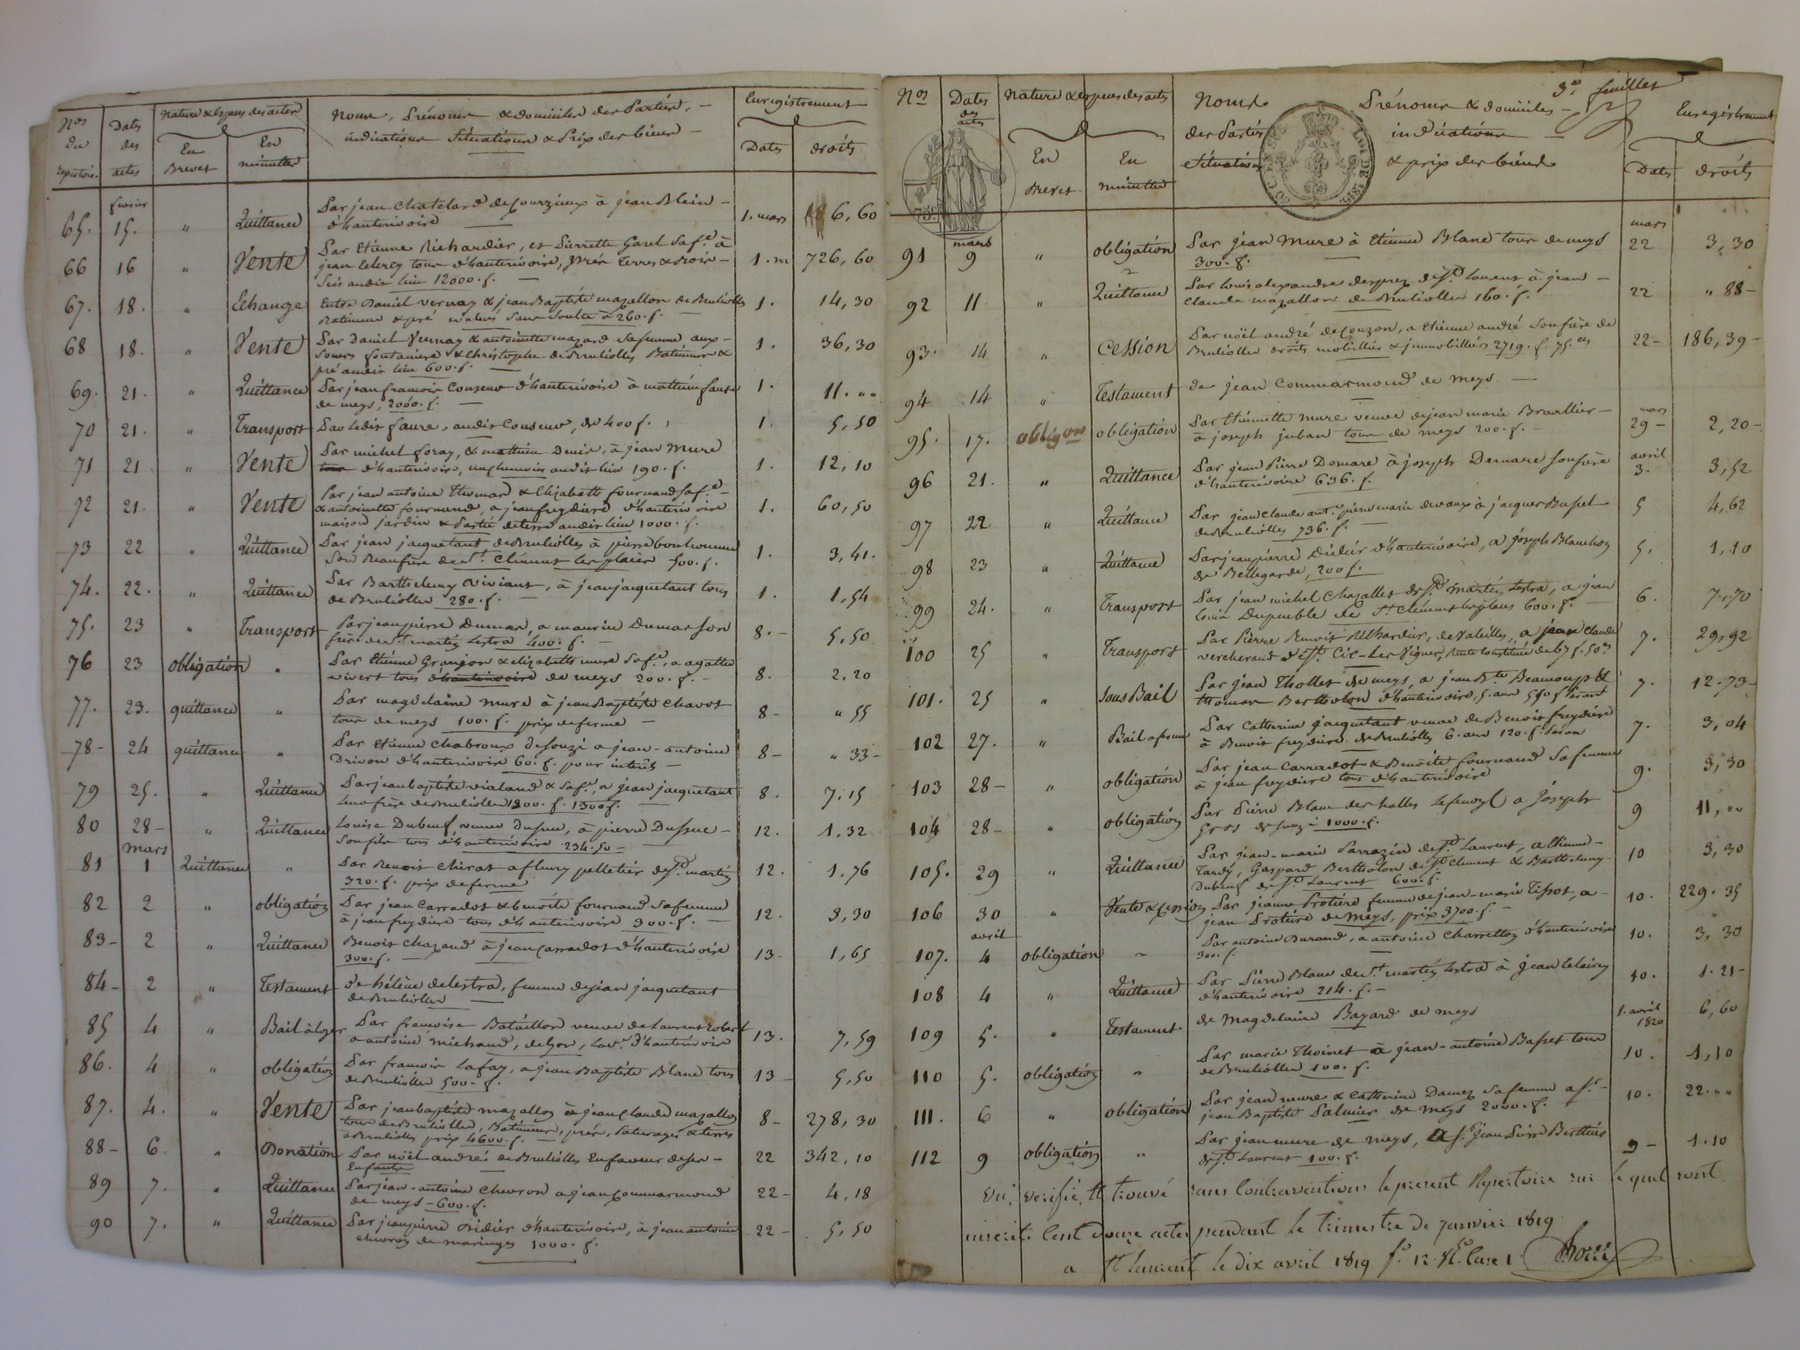 Nos du repertoire
Dates des actes
Nature & especes des actes
En Brevet
En minutte
Noms, Prénoms & domiciles des Parties,
indications Situations & Prix des biens
Enregistrement
Dates
droits
fevrier
65. 15. " Quittance Par jean Chatelard de Courzieux à jean Blein 1. mars 6,60
d'hauterivoire
66 16 " Vente Par Etienne Richardier, et Pierrette Garel sa fe. à 1. m 726,60
jean Clercy tous d'hauterivoire, Prés terres & bois
Sis audit lieu 12000. f.
67. 18. " Echange Entre Daniel Vernay & jean Baptiste mazallon de Brullioles 1. 14,30
Batiment & pré évalués Sans Soulte à 260. f.
68 18. " Vente Par Daniel Vernay & antoinette mazard Sa femme aux 1. 36,30
Soeurs fontaniere & Christophe de Brullioles Batiment &
pré audit lieu 600. f.
69. 21. " Quittance Par jean francois Couseur d'hauterivoire à mathieu faure 1. 11. "
de meys, 2000. f.
70 21. " Transport Par Ledit faure, audit Couseur, de 400 f. 1. 5,50
71 21 " Vente Par michel foray, & mathieu Denis, à jean Mure 1. 12,10
d'hauterivoire, audit lieu 190. f.
72 21. " Vente Par jean antoine Thomas & Elizabeth fournand sa fe. 1. 60,50
& antoinette fournand, a jean freydiere d'hauterivoire
maison jardin & Partie de terre audit lieu 1000. f.
73 22 " Quittance Par jean jacquetant de Brullioles à pierre bonhomme 1. 3,41.
Son Beaufrère de St. Clément les places 500. f.
74. 22. " Quittance Par Barthelemy Viviant, à jean jacquetant tous 1. 1,54
de Brullioles 280. f.
75. 23 " Transport Par jean pierre Dumas, a maurice Dumas Son 8. 5,50
frère de St. martin Lestra 400. f.
76 23 obligation " Par Etienne Granjon & elizabeth mure Sa fe., a agathe 8. 2,20
vivert tous de meys 200. f.
77. 23. quittance " Par magdelaine mure à jean Baptiste Chavot 8 " 55
tous de meys 100. f. prix de ferme
78 24 quittance " Par Etienne Chabroux de Souzi a jean-antoine 8 " 33
Drivon d'hauterivoire 60. f. pour intérêts
79 25. " Quittance Par jean baptiste vialand & Sa fe., a jean jacquetant 8. 7,15
de Brullioles 1300. f.
80 28 " Quittance Louise Dubeuf, veuve Dussuc, à pierre Dussuc 12. 1,32
Son fils tous d'hauterivoire 234.50
mars
81 1 Quittance " Par Benoit Chirat a fleury pelletier de St. martin 12. 1,76
320. f. prix de ferme
82 2 " obligation Par jean Carradot & benoite fournand Sa femme 12. 3,30
à jean freydiere tous d'hauterivoire 300. f.
83 2 " Quittance Benoit Chazaud à jean Carradot d'hauterivoire 13. 1,65
300. f.
84 2 " Testament de hélène delestra, femme de jean jacquetant
de Brullioles
85 4 " Bail à loyer Par francoise Bataillon veuve de Laurent robert 13. 7,59
a antoine michaud, de d'hauterivoire
86. 4 " obligation Par francois Lafay, a jean Baptiste Blanc tous 13 5,50
de Brullioles 500. f.
87. 4. " Vente Par jean baptiste mazallon à jean Claude mazallon 8 278,30
tous de Brullioles, Batiment, prés, Paturages & terres
à Brullioles prix 4600. f.
88 6. " Donation Par noël andré de Brullioles En faveur de ses 22 342,10
Enfants
89 7. " Quittance Par jean-antoine Chevron a jean Commarmond 22 4,18
de meys 600. f.
90 7. " Quittance Par jean pierre Didier d'hauterivoire, à jean antoine 22 5,50
chevron de maringes 1000. f.
3e. feuillet
Nos
Dates des actes
Nature & especes des actes
En Brevet
En minutte
Noms Prénoms & domiciles
des Parties indications
Situations & prix des biens
Enregistrement
Dates
droits
mars
91 9 " obligation Par jean Mure à Etienne Blanc tous de meys mars 22 3,30
300. f.
92 11 " Quittance Par Louis alexandre desprez de St. Laurent à jean 22 " 88
Claude mazallon de Brullioles 160. f.
93. 14 " Cession Par noël andré de Couzon, a Etienne andré Son frère de 22 186,39
Brullioles droits mobiliers & immobiliers 2719. f. 75 ces
94 14 " Testament de jean Commarmond de meys
95. 17. obligation obligation Par Etiennette mure veuve de jean marie Bruellier mars 29 2,20
à joseph juban tous de meys 200. f.
96 21. " Quittance Par jean Pierre Domare à joseph Demare Son frère avril 3. 3,52
d'hauterivoire 636. f.
97 22 " Quittance Par jean Claude ant. pierre marie devaux à jacques Basset 5 4,62
de Brullioles 736. f.
98 23 " Quittance Par jean pierre Didier d'hauterivoire, a joseph Blanchon 5. 1,10
de Bellegarde, 200 f.
99 24. " Transport Par jean michel Chazallet de St. martin Lestra, a jean 6. 7,70
Dupeuble de St Clément les places 600. f.
100 25 " Transport Par Pierre Benoit Richardier, de Valeilles, a jean Claude 7. 29,92
vercherand de St. Cir-Les-Vignes, Rente Constituée de 67 f. 50 ces
101. 25 " Sous Bail Par jean Thollet de meys, a jean Bte. Beaucoup & 7. 12.73
thomas Bertholon d'hauterivoire, 5. ans 550 f. Par an
102 27. " Bail a ferme Par Catherine jacquetant veuve de Benoit freydiere 7. 3,04
à Benoit freydiere de Brullioles 6. ans 120. f. Par an
103 28 " obligation Par jean Carradot & Benoite fournand Sa femme 9. 3,30
à jean freydiere tous d'hauterivoire
104 28 " obligation Par Pierre Blanc des halles Lefenoyl a Joseph 9 11, "
Gros de Souzi 1000. f.
105. 29 " Quittance Par jean-marie Parrazin de St. Laurent, a Etienne 10 3,30
Tardy, Gaspard Bertholon de St. Clement & Barthelemy
Dubeuf de St. Laurent 600. f.
106 30 " Vente & Cession Par jeanne Protiere femme de jean-marie Tissot, a 10. 229.35
jean Protiere de Meys, prix 3700. f.
avril
107. 4 obligation " Par antoine Durand, a antoine Charretton d'hauterivoire 10. 3,30
300. f.
108 4 " Quittance Par Pierre Blanc de St. martin Lestra à jean 10. 1.21
d'hauterivoire 214. f.
109 5. " Testament de Magdelaine Bazard de meys 1. avril 1820 6,60
110 5. obligation " Par marie Thoinet à jean-antoine Basset tous 10. 1,10
de Brullioles 100. f.
111. 6 " obligation Par jean mure & Catherine Damez Sa femme a Sr. 10. 22. "
jean Baptiste Palmier de Meys 2000. f.
112 9 obligation " Par jean mure de meys, a Sr. jean Pierre Berthier 9 1.10
de St. Laurent 100. f.
Vu, verifié, et trouvé sans Contraventions le present Repertoire sur le quel sont
inscrits Cent douze actes pendant le trimestre de janvier 1819
a St Laurent le dix avril 1819 fo. 12 Ro. Case 1